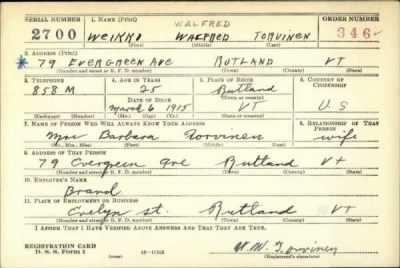 SERIAL NUMBER 1. NAME (Print) WALFRED ORDER NUMBER
2700 WEIKKI WALFRED TORVINEN 346
(First) (Middle) (Last)
2. ADDRESS (Print)
* 79 EVERGREEN AVE RUTLAND VT
(Number and street or R. F. D. number) (Town) (County) (State)
3. TELEPHONE 4. AGE IN YEARS 5. PLACE OF BIRTH 6. COUNTRY OF CITIZENSHIP
858 M 25 Rutland
(Town or county)
DATE OF BIRTH
March 6 1915 VT U S
(Exchange) (Number) (Mo.) (Day) (Yr.) (State or country)
7. NAME OF PERSON WHO WILL ALWAYS KNOW YOUR ADDRESS 8. RELATIONSHIP OF THAT PERSON
Mrs Barbara Torvinen wife
(Mr., Mrs., Miss) (First) (Middle) (Last)
9. ADDRESS OF THAT PERSON
79 Evergreen Ave Rutland Vt
(Number and street or R. F. D. number) (Town) (County) (State)
10. EMPLOYER'S NAME
Brand
11. PLACE OF EMPLOYMENT OR BUSINESS
Evelyn St. Rutland Vt
(Number and street or R. F. D. number) (Town) (County) (State)
I AFFIRM THAT I HAVE VERIFIED ABOVE ANSWERS AND THAT THEY ARE TRUE.
REGISTRATION CARD
D. S. S. Form 1 (over) W. W. Torvinen
(Registrant's signature)